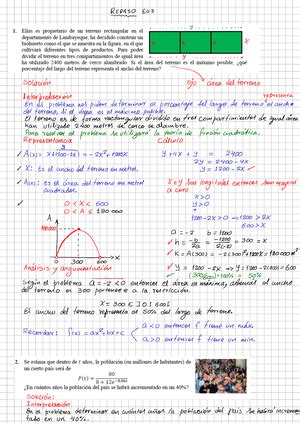 REPASO EC3
1. Elías es propietario de un terreno rectangular en el
departamento de Lambayeque, ha decidido construir un
biohuerto como el que se muestra en la figura, en el que
cultivará diferentes tipos de productos. Para poder
dividir el terreno en tres compartimientos de igual área
ha utilizado 2400 metros de cerco alambrado. Si el área del terreno es el máximo posible, ¿qué
porcentaje del largo del terreno representa el ancho del terreno?
y
x
Solución
área del terreno
Interpretación
representa
En el problema nos piden determinar el porcentaje del largo de terreno al ancho
del terreno, si el área es el máximo posible.
El terreno es de forma rectangular dividido en tres compartimientos de igual área
han utilizado 2400 metros de cerco alambrado.
Para resolver el problema se utilizará la teoría de función cuadrática.
Representación
Cálculo
y + 4x + y = 2400
2y = 2400 - 4x
y = 1200 - 2x
X: Es el ancho del terreno en metros.
A(x): Es el área del terreno en metros
cuadrados.
X e y sus longitudes entonces son mayores
a cero
x > 0
y > 0
1200 - 2x > 0 → 1200 > 2x
600 > x
0 < X < 600
0 < A ≤ 180000
A
180000
0
300
600
X
a = -2
b = 1200
K = A(300) = -2(300)²+1200(300) = 180000 m²
y = 1200 - 2x → y = 1200 - 2(300) = 600
Análisis y argumentación
Según el problema a = -2 < 0 entonces el área es máxima, además el ancho
del terreno es 300 pertenece a la restricción.
X = 300 ∈ ]0; 600[
El ancho del terreno representa el 50% del largo de terreno.
Recordar: f(x) = ax² + bx + c
a < 0 entonces f tiene un máx.
a > 0 entonces f tiene un mín.
2. Se estima que dentro de t años, la población (en millones de habitantes) de
un cierto país será de
¿En cuántos años la población del país se habrá incrementado en un 40%?
Solución:
Interpretación
En el problema determinar en cuántos años la población del país se habrá incremen-
tado en un 40%.